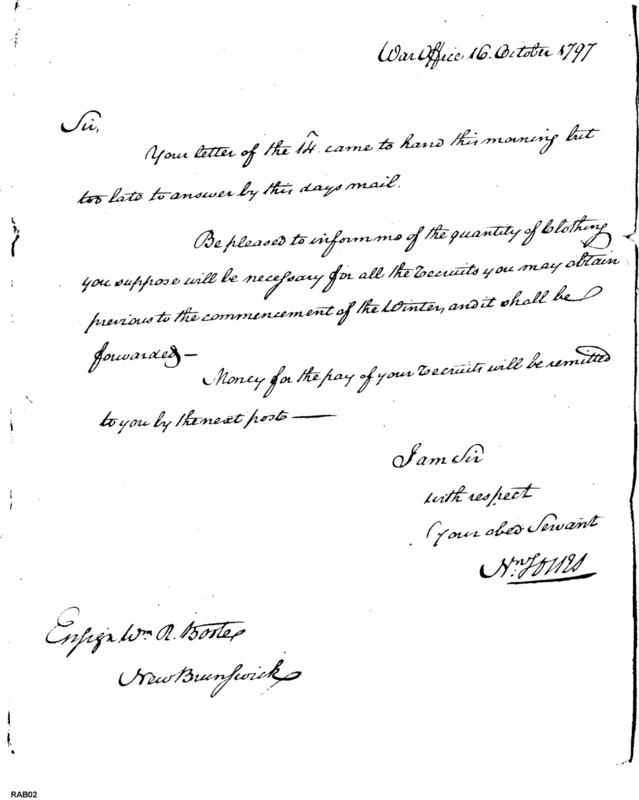 War Office 16. October 1797
Sir,
Your letter of the 14. came to hand this morning but
too late to answer by this days mail.
Be pleased to inform me of the quantity of Clothing
you suppose will be necessary for all the recruits you may obtain
previous to the commencement of the Winter, and it shall be
forwarded —
Money for the pay of your recruits will be remitted
to you by the next post —
I am Sir
with respect
Your obed. Servant
Ensign Wm R. Boote
New Brunswick
RAB02